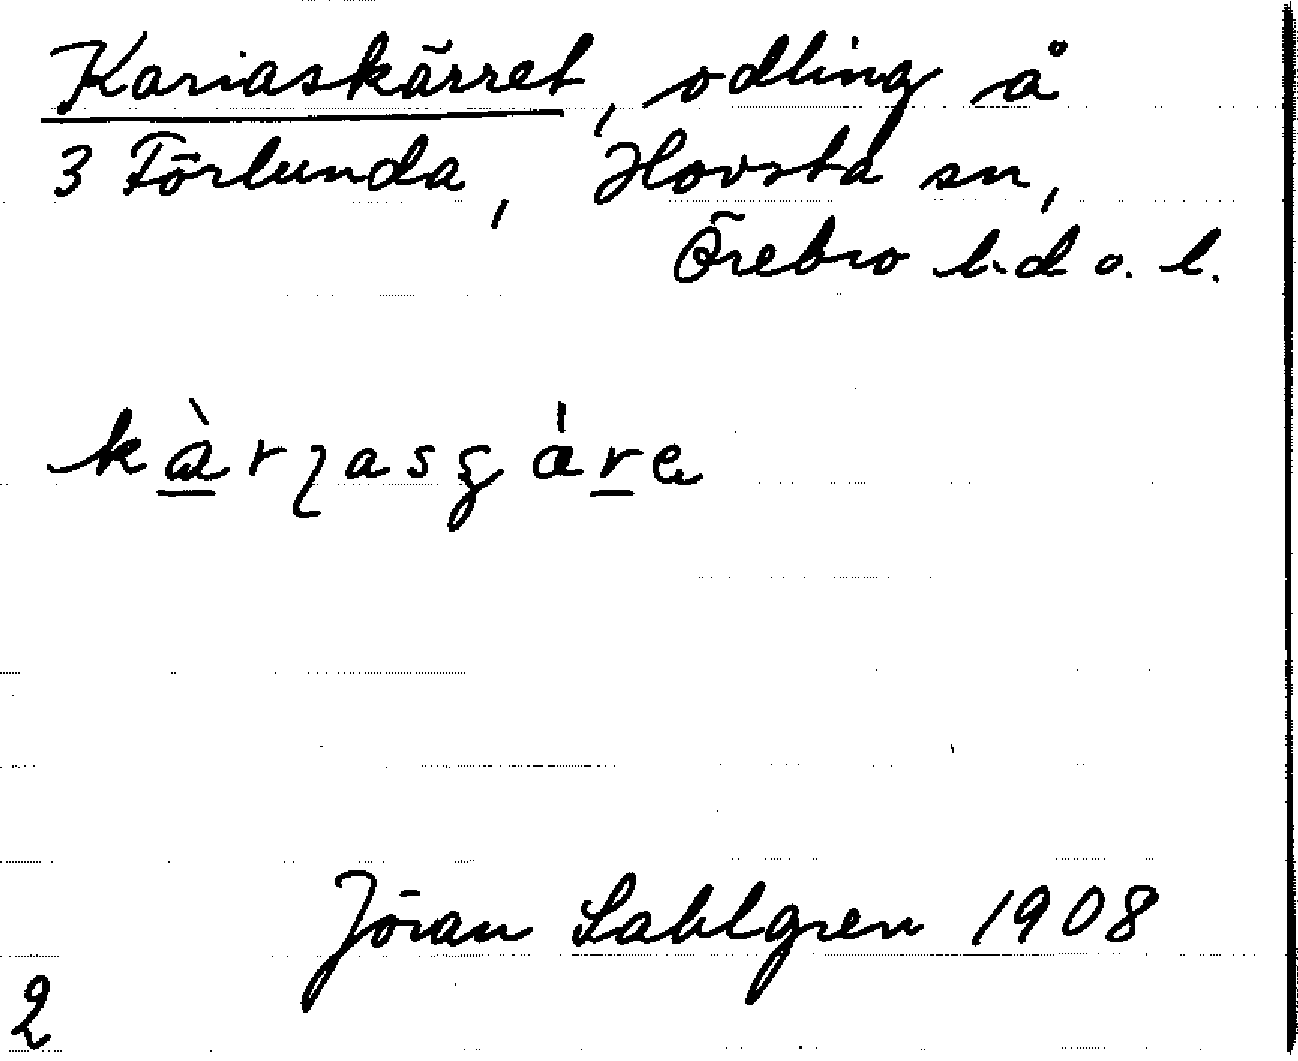 Kariaskärret, odling å
3 Törlunda, Hovsta sn,
Örebro h.d o. l.
kàrɀasgáre
Jöran Sahlgren 1908
2